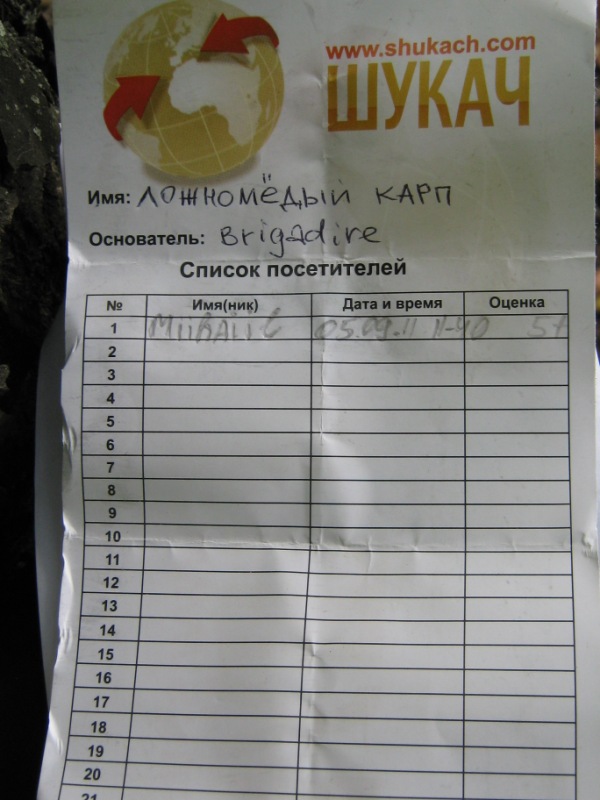 www.shukach.com
ШУКАЧ
Имя: ЛОЖНОМЁДЫЙ КАРП
Основатель: Brigadire
Список посетителей
№ Имя(ник) Дата и время Оценка
1 05.09.11 11-40 5+
2
3
4
5
6
7
8
9
10
11
12
13
14
15
16
17
18
19
20
21